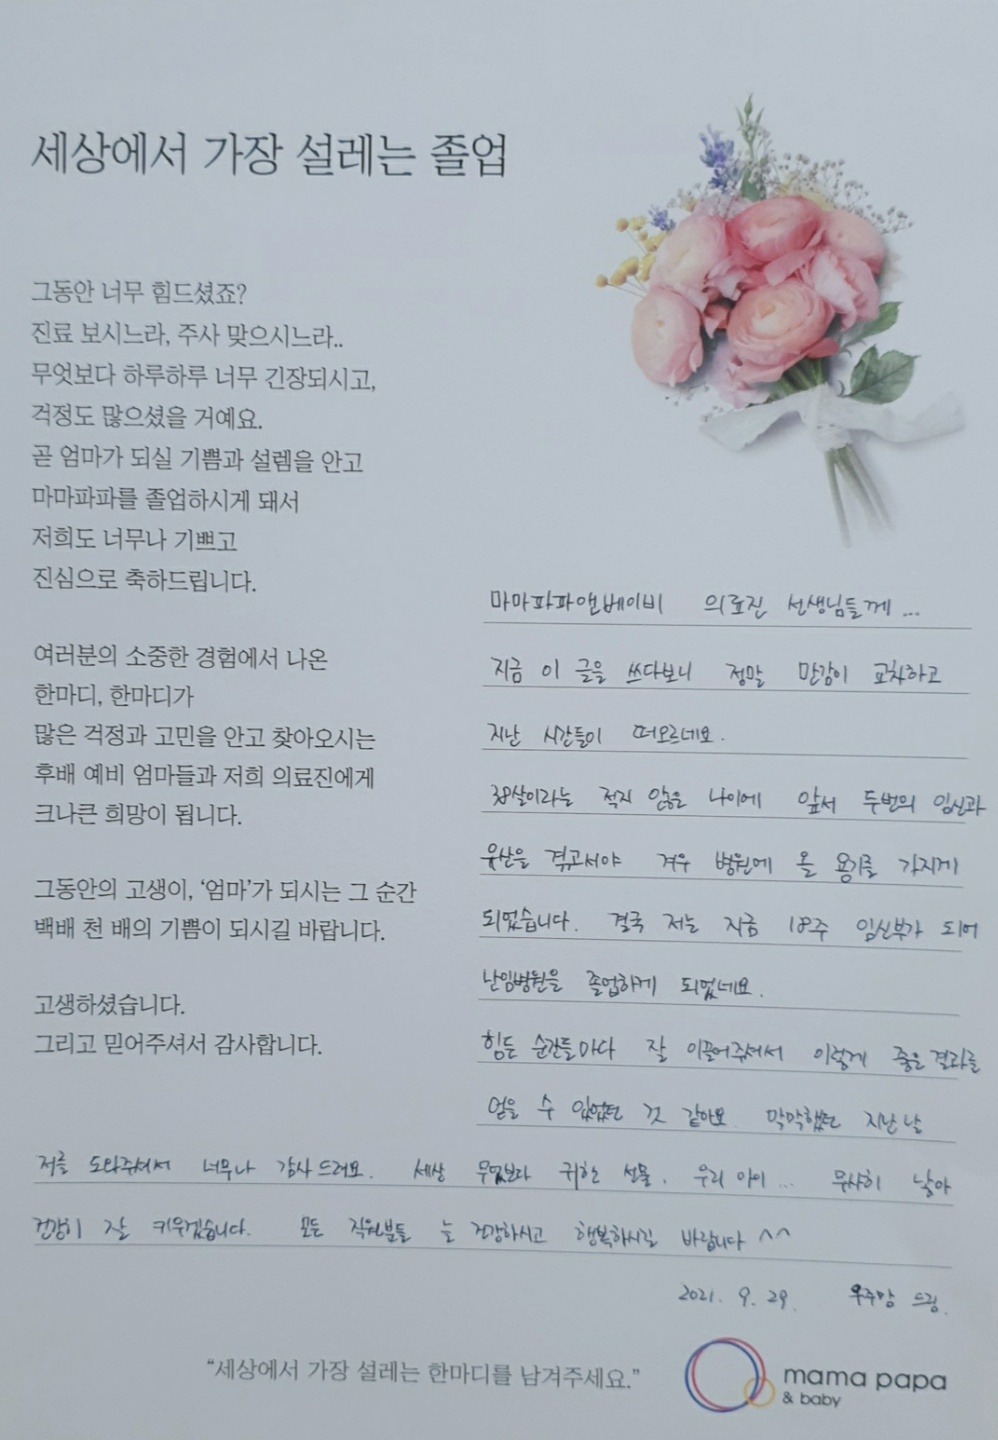 세상에서 가장 설레는 졸업
그동안 너무 힘드셨죠?
진료 보시느라, 주사 맞으시느라..
무엇보다 하루하루 너무 긴장되시고,
걱정도 많으셨을 거예요.
곧 엄마가 되실 기쁨과 설렘을 안고
마마파파를 졸업하시게 돼서
저희도 너무나 기쁘고
진심으로 축하드립니다.
여러분의 소중한 경험에서 나온
한마디, 한마디가
많은 걱정과 고민을 안고 찾아오시는
후배 예비 엄마들과 저희 의료진에게
크나큰 희망이 됩니다.
그동안의 고생이, '엄마'가 되시는 그 순간
백배 천 배의 기쁨이 되시길 바랍니다.
고생하셨습니다.
그리고 믿어주셔서 감사합니다.
마마파파앤베이비 의료진 선생님들께...
지금 이 글을 쓰다보니 정말 만감이 교차하고
지난 시간들이 떠오르네요.
38살이라는 적지 않은 나이에 앞서 두번의 임신과
유산을 겪고서야 겨우 병원에 올 용기를 가지게
되었습니다. 결국 저는 지금 18주 임신부가 되어
난임병원을 졸업하게 되었네요.
힘든 순간들마다 잘 이끌어주셔서 이렇게 좋은 결과를
얻을 수 있었던 것 같아요. 막막했던 지난 날
저를 도와주셔서 너무나 감사드려요. 세상 무엇보다 귀한 선물, 우리 아이... 무사히 낳아
건강히 잘 키우겠습니다. 모든 직원분들 늘 건강하시고 행복하시길 바랍니다 ^^
2021. 9. 29. 우주맘 드림.
"세상에서 가장 설레는 한마디를 남겨주세요."
mama papa
& baby